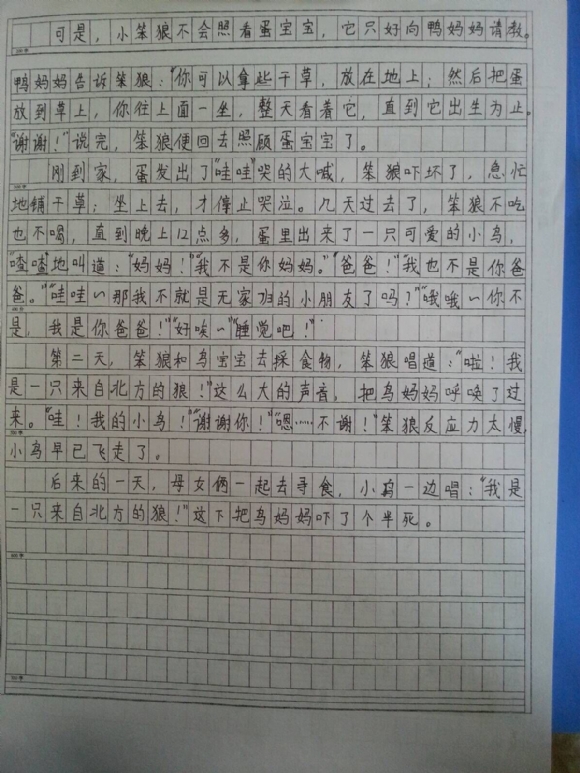 可是，小笨狼不会照看蛋宝宝，它只好向鸭妈妈请教。
鸭妈妈告诉笨狼：“你可以拿些干草，放在地上；然后把蛋
放到草上，你往上面一坐，整天看着它，直到它出生为止。
“谢谢！”说完，笨狼便回去照顾蛋宝宝了。
刚到家，蛋发出了“哇哇”哭的大喊，笨狼吓坏了，急忙
地铺干草；坐上去，才停止哭泣。几天过去了，笨狼不吃
也不喝，直到晚上12点多，蛋里出来了一只可爱的小鸟，
“喳喳”地叫道：“妈妈！”“我不是你妈妈。”“爸爸！”“我也不是你爸
爸。”“哇哇~那我不就是无家归的小朋友了吗？”“哦哦~你不
是，我是你爸爸！”“好唉~”“睡觉吧！”
第二天，笨狼和鸟宝宝去採食物，笨狼唱道：“啦！我
是一只来自北方的狼！”这么大的声音，把鸟妈妈呼唤了过
来。“哇！我的小鸟！”“谢谢你！”“嗯……不谢！”笨狼反应力太慢，
小鸟早已飞走了。
后来的一天，母女俩一起去寻食，小鸟一边唱：“我是
一只来自北方的狼！”这下把鸟妈妈吓了个半死。